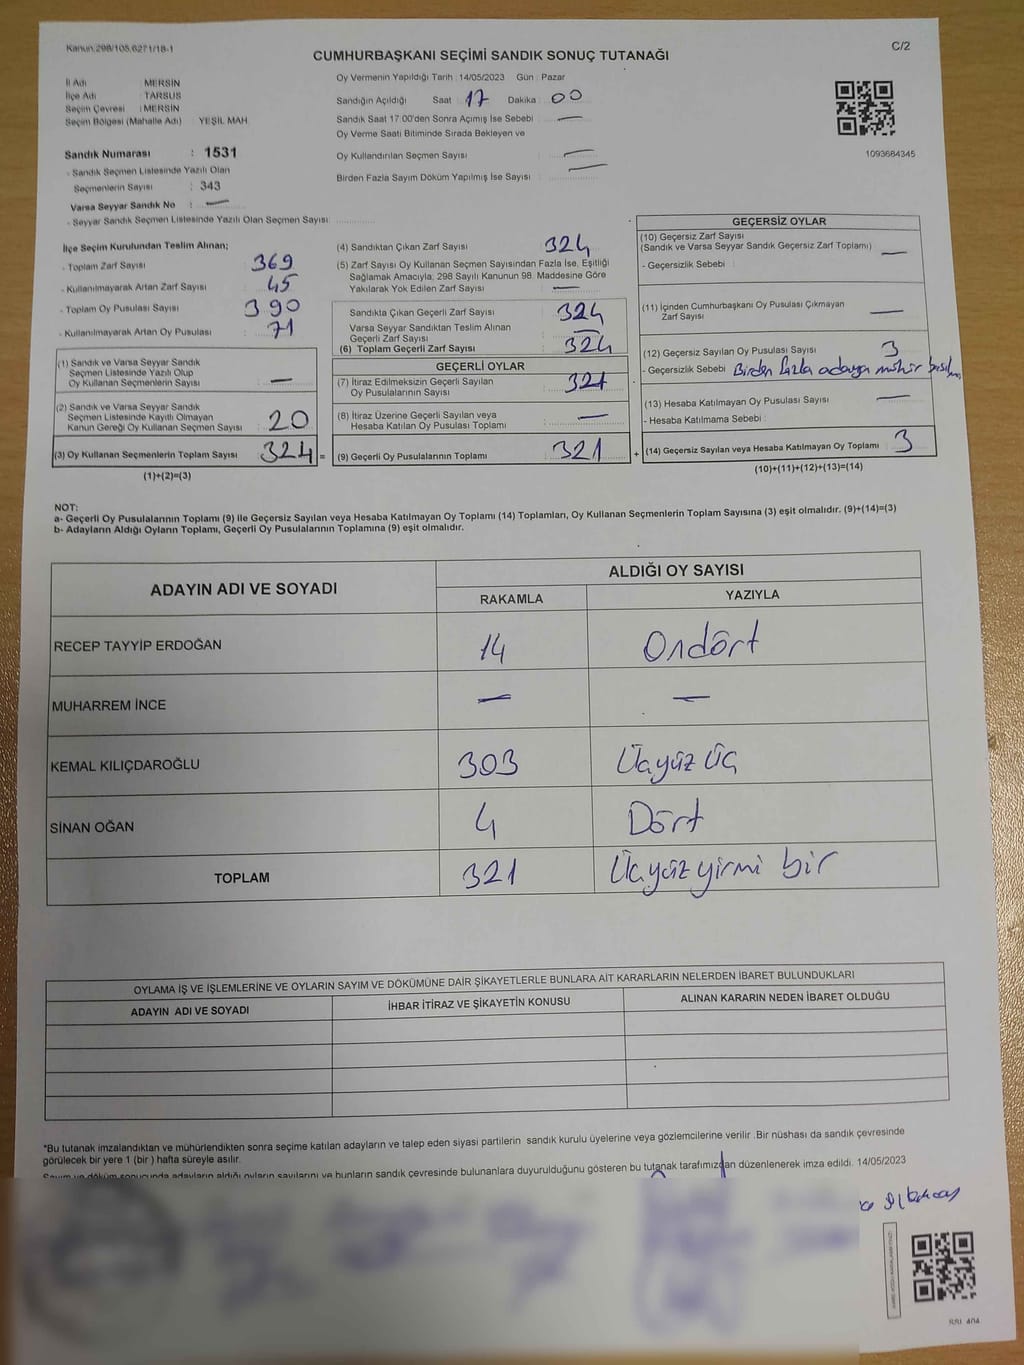 Kanun:298/105,6271/18-1
C/2
CUMHURBAŞKANI SEÇİMİ SANDIK SONUÇ TUTANAĞI
İl Adı : MERSİN
İlçe Adı : TARSUS
Seçim Çevresi : MERSİN
Seçim Bölgesi (Mahalle Adı) : YEŞİL MAH.
Oy Vermenin Yapıldığı Tarih : 14/05/2023 Gün : Pazar
Sandığın Açıldığı Saat : 17 Dakika : 00
Sandık Saat 17:00'den Sonra Açımış İse Sebebi : —
Oy Verme Saati Bitiminde Sırada Bekleyen ve
Oy Kullandırılan Seçmen Sayısı : —
Birden Fazla Sayım Döküm Yapılmış İse Sayısı : —
1093684345
Sandık Numarası : 1531
- Sandık Seçmen Listesinde Yazılı Olan
Seçmenlerin Sayısı : 343
Varsa Seyyar Sandık No : —
- Seyyar Sandık Seçmen Listesinde Yazılı Olan Seçmen Sayısı:
İlçe Seçim Kurulundan Teslim Alınan;
- Toplam Zarf Sayısı : 369
- Kullanılmayarak Artan Zarf Sayısı : 45
- Toplam Oy Pusulası Sayısı : 390
- Kullanılmayarak Artan Oy Pusulası : 71
(1) Sandık ve Varsa Seyyar Sandık
Seçmen Listesinde Yazılı Olup
Oy Kullanan Seçmenlerin Sayısı : —
(2) Sandık ve Varsa Seyyar Sandık
Seçmen Listesinde Kayıtlı Olmayan
Kanun Gereği Oy Kullanan Seçmen Sayısı : 20
(3) Oy Kullanan Seçmenlerin Toplam Sayısı : 324 =
(1)+(2)=(3)
(4) Sandıktan Çıkan Zarf Sayısı : 324
(5) Zarf Sayısı Oy Kullanan Seçmen Sayısından Fazla İse, Eşitliği
Sağlamak Amacıyla; 298 Sayılı Kanunun 98. Maddesine Göre
Yakılarak Yok Edilen Zarf Sayısı : —
Sandıkta Çıkan Geçerli Zarf Sayısı : 324
Varsa Seyyar Sandıktan Teslim Alınan
Geçerli Zarf Sayısı : —
(6) Toplam Geçerli Zarf Sayısı : 324
GEÇERLİ OYLAR
(7) İtiraz Edilmeksizin Geçerli Sayılan
Oy Pusulasının Sayısı : 321
(8) İtiraz Üzerine Geçerli Sayılan veya
Hesaba Katılan Oy Pusulası Toplamı : —
(9) Geçerli Oy Pusulalarının Toplamı : 321 +
GEÇERSİZ OYLAR
(10) Geçersiz Zarf Sayısı
(Sandık ve Varsa Seyyar Sandık Geçersiz Zarf Toplamı) : —
- Geçersizlik Sebebi :
(11) İçinden Cumhurbaşkanı Oy Pusulası Çıkmayan
Zarf Sayısı : —
(12) Geçersiz Sayılan Oy Pusulası Sayısı : 3
- Geçersizlik Sebebi : Birden fazla adaya mühür
(13) Hesaba Katılmayan Oy Pusulası Sayısı : —
- Hesaba Katılmama Sebebi :
(14) Geçersiz Sayılan veya Hesaba Katılmayan Oy Toplamı : 3
(10)+(11)+(12)+(13)=(14)
NOT:
a- Geçerli Oy Pusulalarının Toplamı (9) ile Geçersiz Sayılan veya Hesaba Katılmayan Oy Toplamı (14) Toplamları, Oy Kullanan Seçmenlerin Toplam Sayısına (3) eşit olmalıdır. (9)+(14)=(3)
b- Adayların Aldığı Oyların Toplamı, Geçerli Oy Pusulalarının Toplamına (9) eşit olmalıdır.
ADAYIN ADI VE SOYADI
ALDIĞI OY SAYISI
RAKAMLA YAZIYLA
RECEP TAYYİP ERDOĞAN 14 Ondört
MUHARREM İNCE — —
KEMAL KILIÇDAROĞLU 303 Üçyüz üç
SİNAN OĞAN 4 Dört
TOPLAM 321 Üçyüz yirmi bir
OYLAMA İŞ VE İŞLEMLERİNE VE OYLARIN SAYIM VE DÖKÜMÜNE DAİR ŞİKAYETLERLE BUNLARA AİT KARARLARIN NELERDEN İBARET BULUNDUKLARI
ADAYIN ADI VE SOYADI İHBAR İTİRAZ VE ŞİKAYETİN KONUSU ALINAN KARARIN NEDEN İBARET OLDUĞU
*Bu tutanak imzalandıktan ve mühürlendikten sonra seçime katılan adayların ve talep eden siyasi partilerin sandık kurulu üyelerine veya gözlemcilerine verilir .Bir nüshası da sandık çevresinde
görülecek bir yere 1 (bir ) hafta süreyle asılır.
Sayım ve döküm sonucunda adayların aldığı oyların sayılarını ve bunların sandık çevresinde bulunanlara duyurulduğunu gösteren bu tutanak tarafımızdan düzenlenerek imza edildi. 14/05/2023